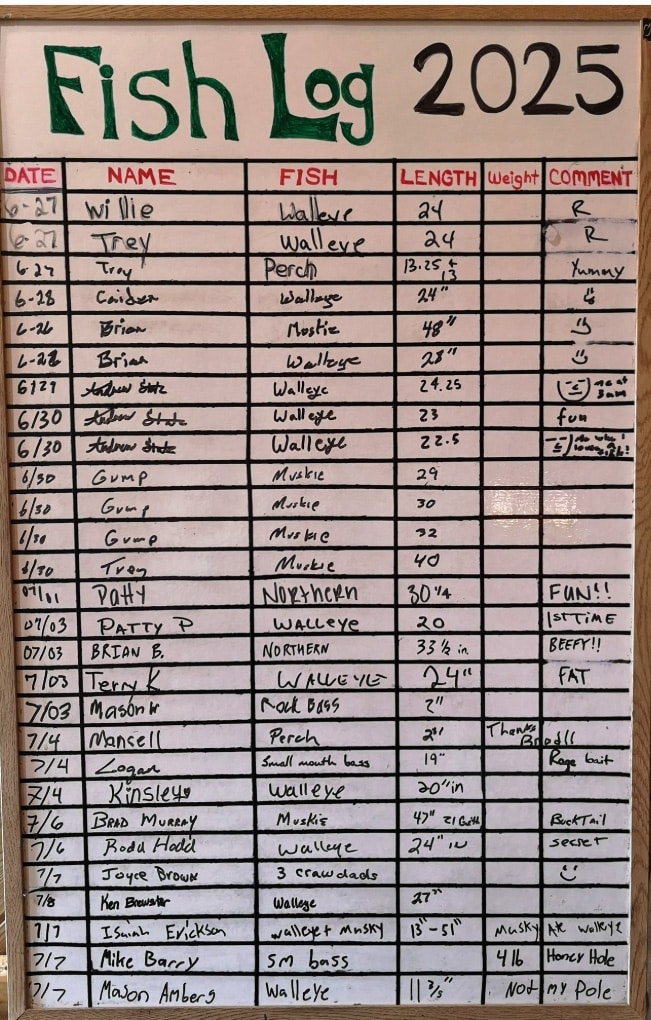 Fish Log 2025
DATE NAME FISH LENGTH Weight COMMENT
6-27 Willie Walleye 24 R
6-27 Trey Walleye 24 R
6-27 Trey Perch 13.25 + 13 Yummy
6-28 Caiden Walleye 24"
6-26 Brian Mostie 48"
6-28 Brian Walleye 28"
6/29 Andrew Walleye 24.25
6/30 Andrew Walleye 23 fun
6/30 Andrew Walleye 22.5
6/30 Gump Muskie 29
6/30 Gump Muskie 30
6/30 Gump Muskie 32
6/30 Trey Muskie 40
07/01 Patty Northern 30 1/4 FUN!!
07/03 PATTY P WALLEYE 20 1ST TIME
07/03 BRIAN B. NORTHERN 33 1/2 in. BEEFY!!
7/03 Terry K WALLEYE 24" FAT
7/03 Mason Rock Bass 2"
7/4 Mansell Perch 2" Thanks Brad!!
7/4 Logan Small mouth bass 19" Rage bait
7/4 Kinsley Walleye 20" in
7/6 BRAD MURRAY Muskie 47" 21 Girth BuckTail
7/6 Rodd Hodd Walleye 24" IN secret
7/7 Joyce Brown 3 crawdads
7/8 Ken Brewster Walleye 27"
7/7 Isaiah Erickson Walleye + Musky 13"-51" Musky Ate Walleye
7/7 Mike Barry SM bass 4 lb Honey Hole
7/7 Mason Ambers Walleye 11 3/5" Not my Pole